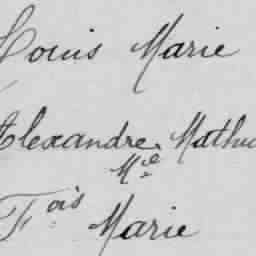 Louis Marie
Alexandre Mathu
Mle
Fois Marie